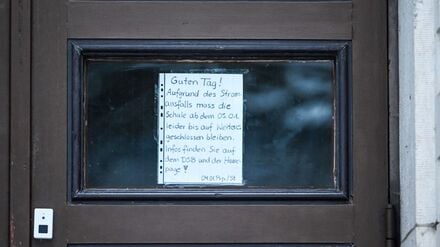 Guten Tag!
Aufgrund des Strom-
ausfalls muss die
Schule ab dem 05.01.
leider bis auf Weiteres
geschlossen bleiben.
Infos finden Sie auf
dem DSB und der Home-
page